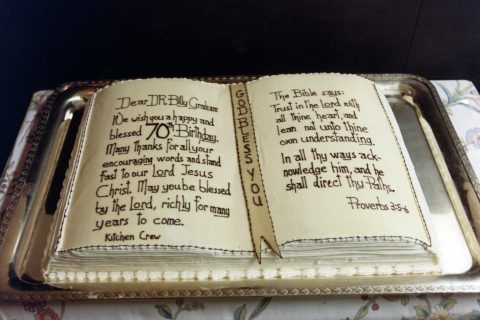 Dear DR. Billy Graham
We wish you a happy and
blessed 70th Birthday.
Many thanks for all your
encouraging words and stand
fast to our Lord Jesus
Christ. May you be blessed
by the Lord, richly for many
years to come.
Kitchen Crew
GOD BLESS YOU
The Bible says:
Trust in the Lord with
all thine heart, and
lean not unto thine
own understanding.
In all thy ways ack-
nowledge him, and he
shall direct thy Paths.
Proverbs 3:5-6